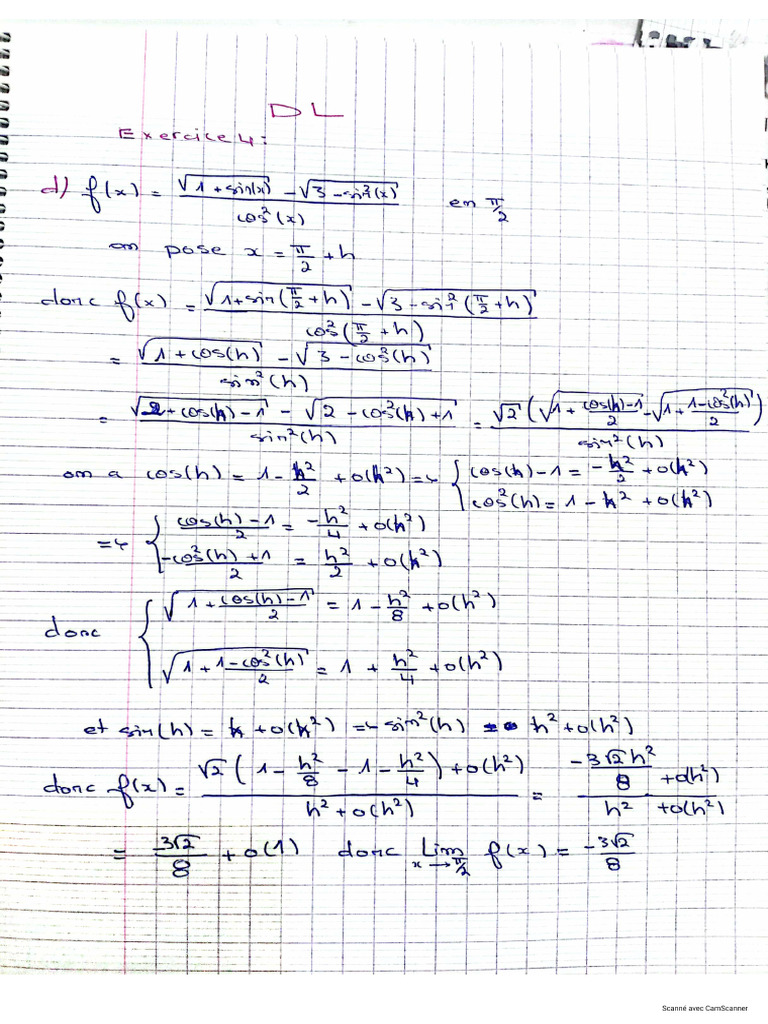 DL
Exercice 4:
d) f(x) = (√(1 + sin(x)) - √(3 - sin²(x))) / cos²(x) en π/2
on pose x = π/2 + h
donc f(x) = (√(1+sin(π/2 + h)) - √(3 - sin²(π/2 + h))) / cos²(π/2 + h)
= (√(1 + cos(h)) - √(3 - cos²(h))) / sin²(h)
= (√(2 + cos(h) - 1) - √(2 - cos²(h) + 1)) / sin²(h) = √2 (√(1 + (cos(h)-1)/2) - √(1 + (1-cos²(h))/2)) / sin²(h)
on a cos(h) = 1 - h²/2 + o(h²) => { cos(h) - 1 = -h²/2 + o(h²)
cos²(h) = 1 - h² + o(h²)
=> { (cos(h) - 1)/2 = -h²/4 + o(h²)
(-cos²(h) + 1)/2 = h²/2 + o(h²)
donc { √(1 + (cos(h) - 1)/2) = 1 - h²/8 + o(h²)
√(1 + (1-cos²(h))/2) = 1 + h²/4 + o(h²)
et sin(h) = h + o(h²) => sin²(h) = h² + o(h²)
donc f(x) = (√2 (1 - h²/8 - 1 - h²/4) + o(h²)) / (h² + o(h²)) = (-3√2 h²/8 + o(h²)) / (h² + o(h²))
= 3√2/8 + o(1) donc Lim x→π/2 f(x) = -3√2/8
Scanné avec CamScanner